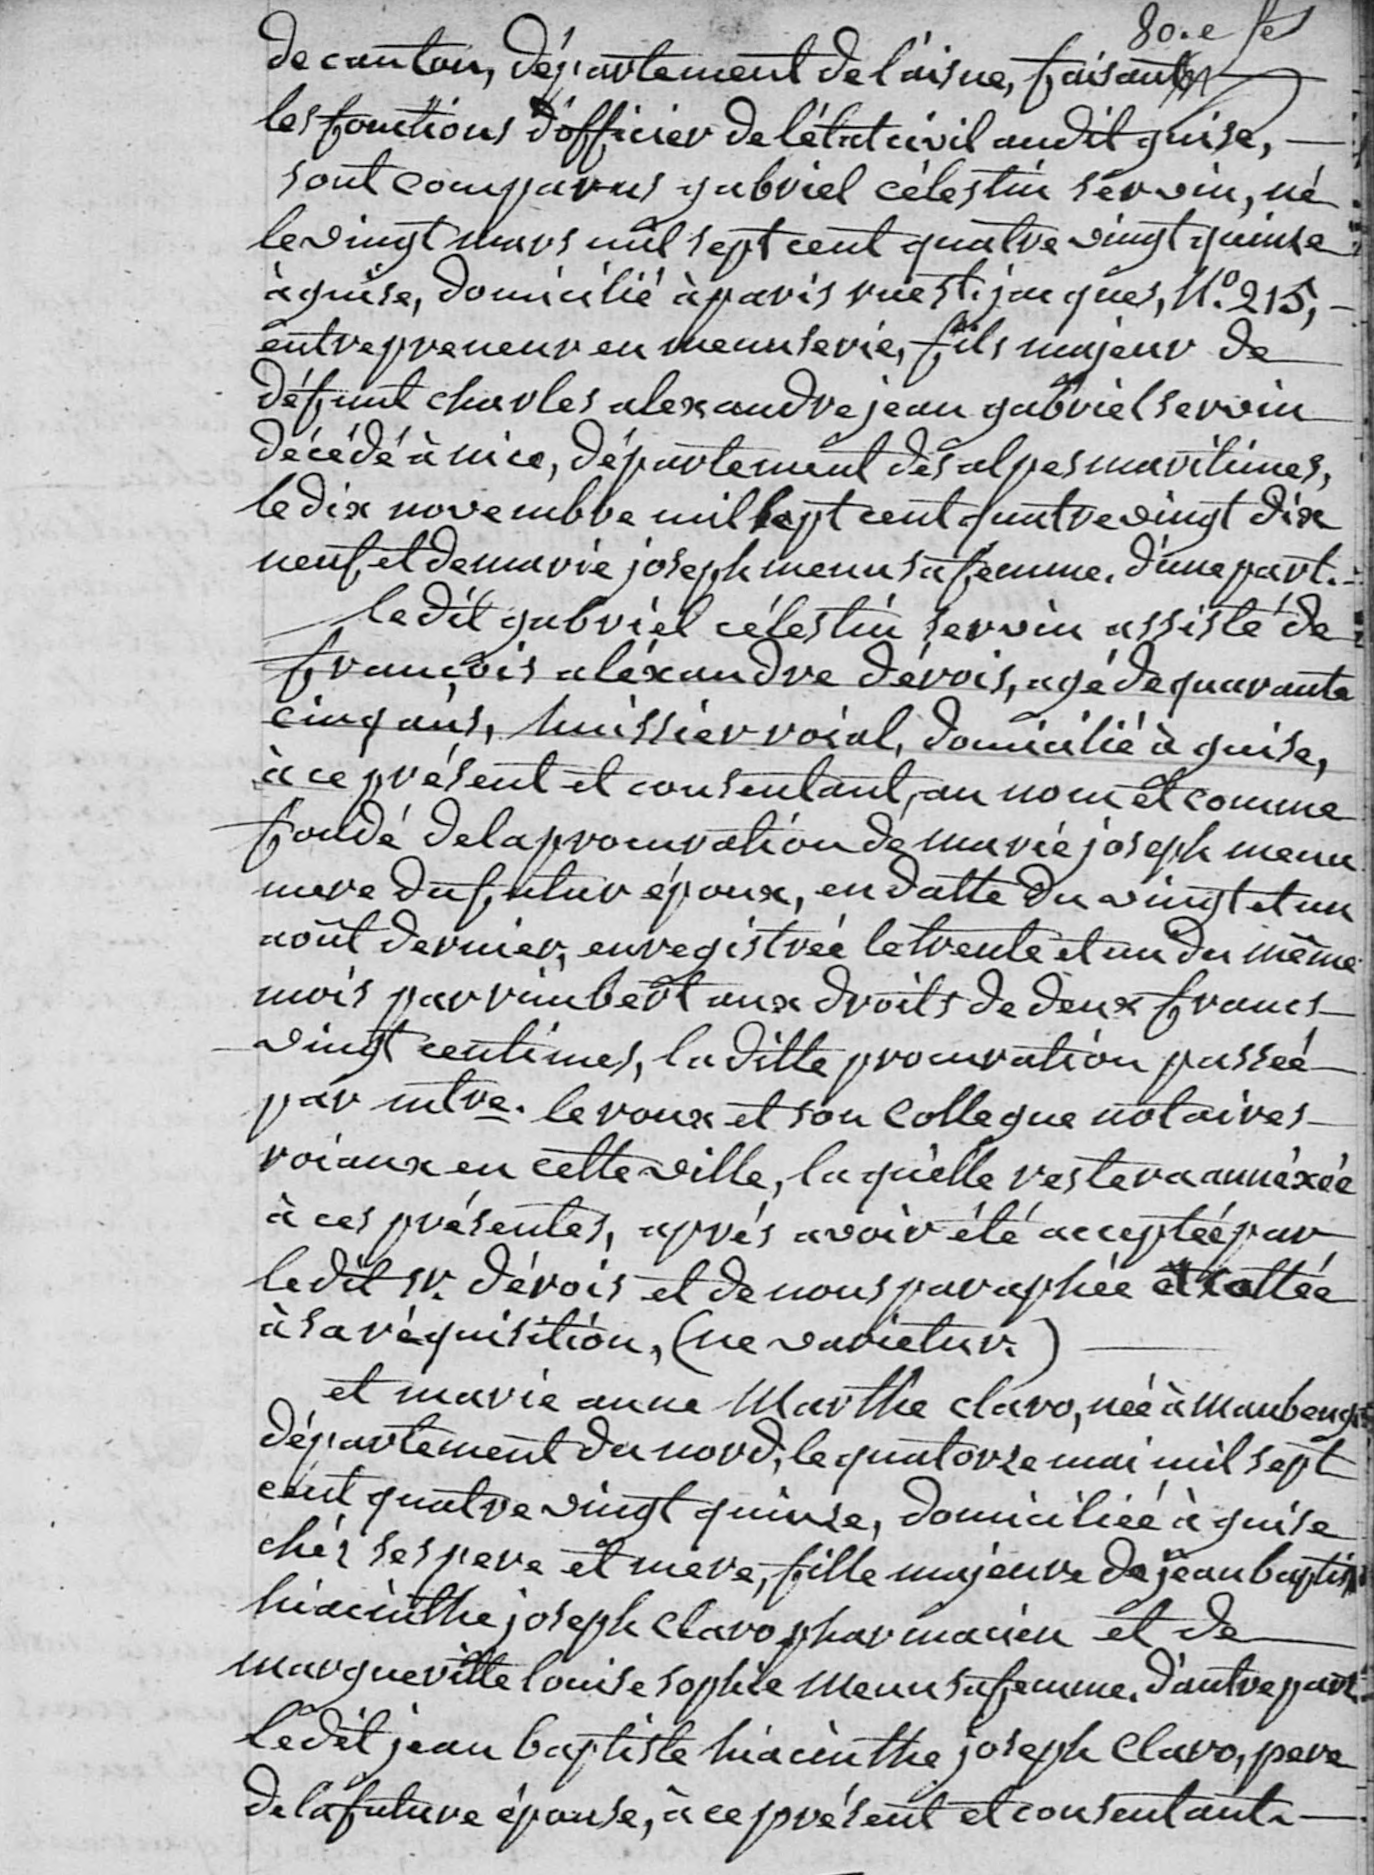 80.e
de canton, département de l'aisne, faisant
les fonctions d'officier de l'état civil audit guise, —
sont comparus gabriel célestin servin, né
le vingt mars mil sept cent quatre vingt quinse
à guise, domicilié à paris rue st. jacques, N.º 215, -
entrepreneur en menuserie, fils majeur de
défunt charles alexandre jean gabriel servin
décédé à nice, département des alpes maritimes,
le dix novembre mil sept cent quatre vingt dix
neuf et de marie joseph menu sa femme. d'une part. -
le dit gabriel célestin servin assisté de
françois aléxandre dérois, agé de quarante
cinq ans, huissier roial, domicilié à guise,
à ce présent et consentant, au nom et comme
fondé de la procuration de marie joseph menu
mere du futur époux, en datte du vingt et un
août dernier, enregistrée le trente et un du même
mois par rimbert aux droits de deux francs
vingt centimes, la ditte procuration passée
par mtre. le roux et son collegue notaires
roiaux en cette ville, la quelle restera annéxée
à ces présentes, aprés avoir été acceptée par
le dit sr. dérois et de nous paraphée et cottée
à sa réquisition, (ne varietur.) —
et marie anne Marthe claro, née à Maubeuge
département du nord, le quatorze mai mil sept
cent quatre vingt quinze, domiciliée à guise
chéz ses pere et mere, fille majeure de jean baptiste
hiacinthe joseph claro pharmacien et de
margueritte louise sophie Menu sa femme. d'autre part
le dit jean baptiste hiacinthe joseph Claro, pere
de la future épouse, à ce présent et consentant. —